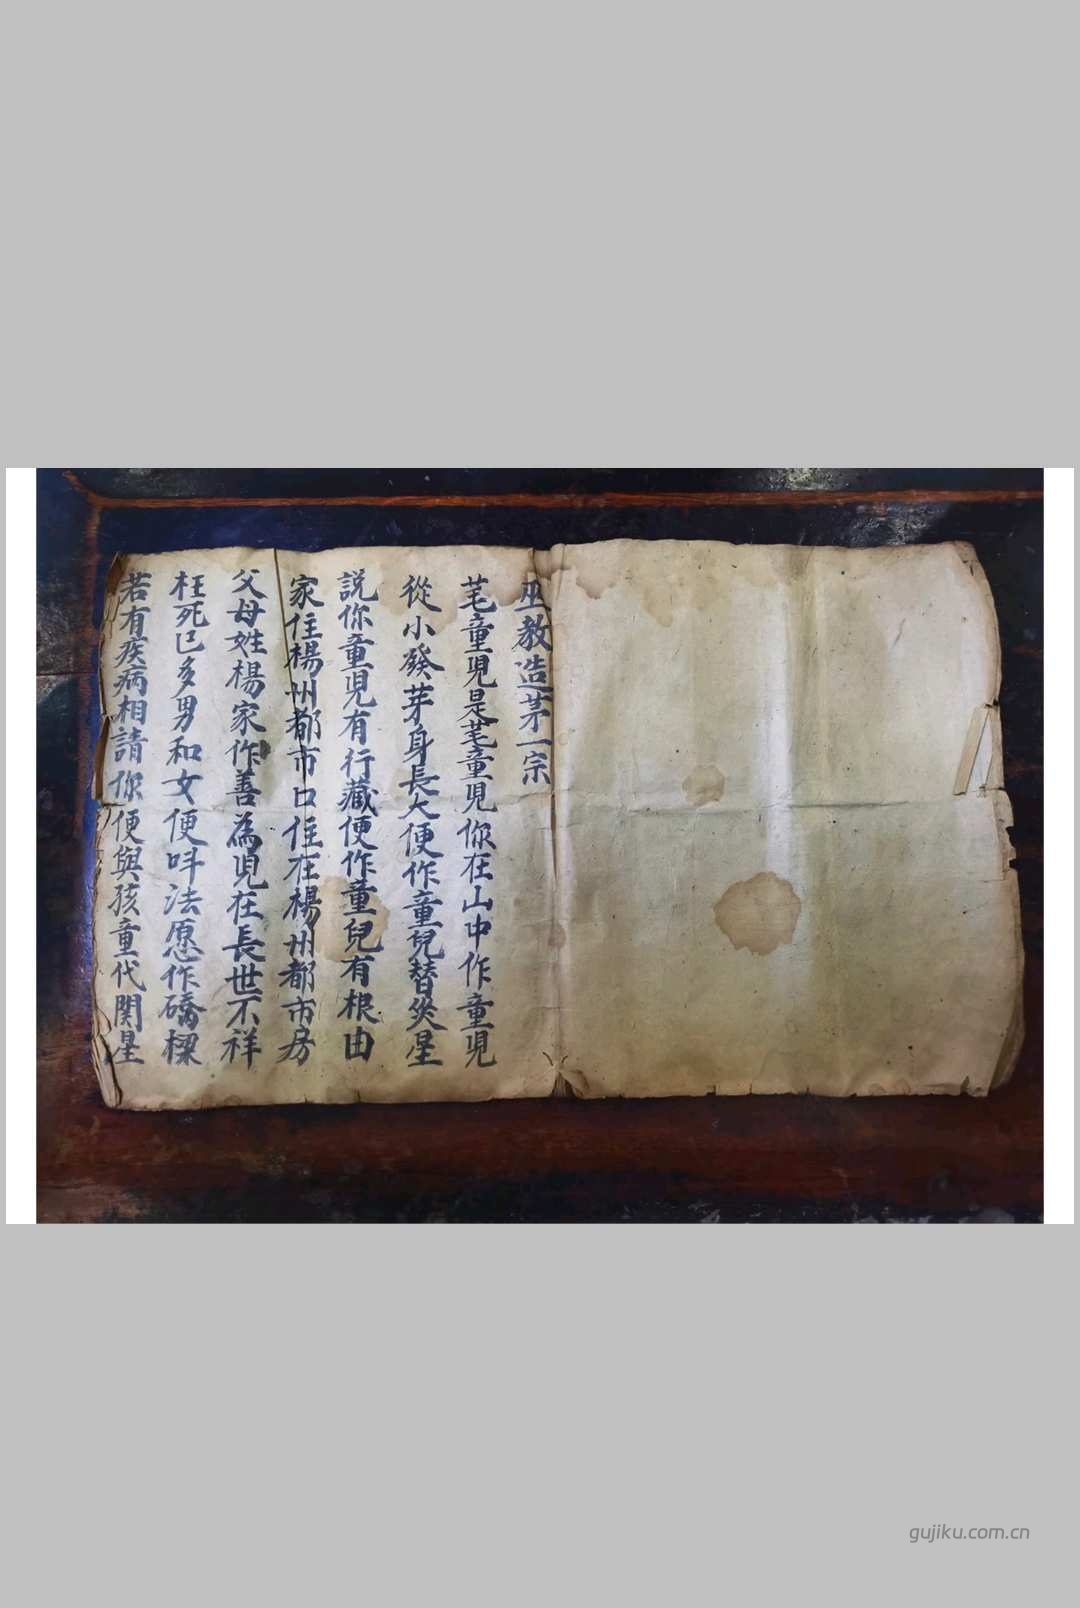 巫教造茅一宗
芼童児是芼童児你在山中作童児
從小發芽身長大便作童兒替災星
説你童児有行藏便作童兒有根由
家住楊州都市口住在楊州都市房
父母姓楊家作善為児在長世不祥
枉死已多男和女便呌法愿作礄樑
若有疾病相請你便與孩童代関星
gujiku.com.cn